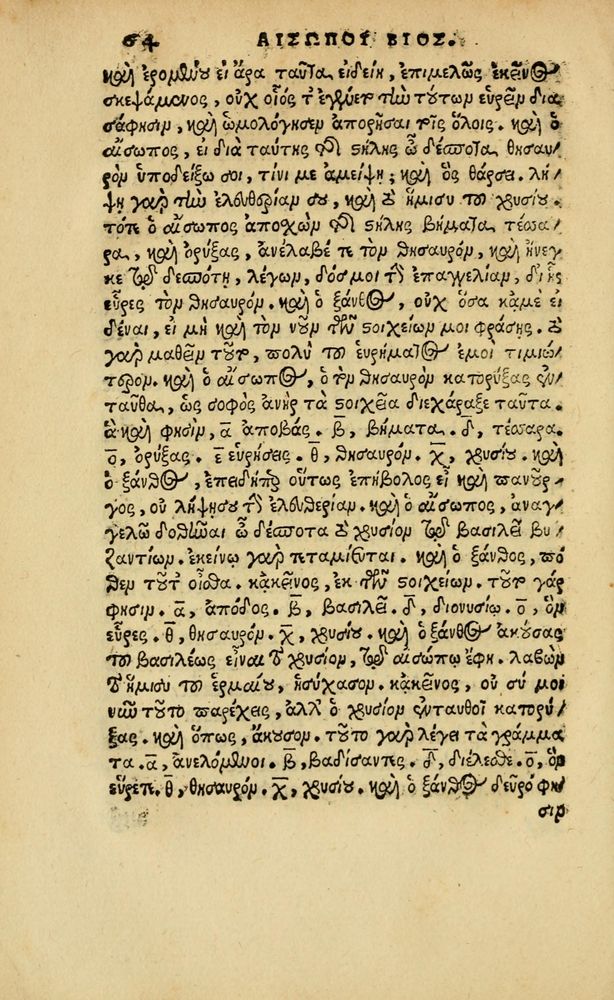 64 ΑΙΣΩΠΟΥ ΒΙΟΣ.
καὶ ἐρομένου εἰ ἄρα ταῦτα εἰδείη, ἐπιμελῶς ἐκεῖνος
σκεψάμενος, οὐχ οἷός τ' ἐγένετο τὴν τούτων εὑρεῖν δια
σάφησιν, καὶ ὡμολόγησεν ἀπορῆσαι τοῖς ὅλοις. καὶ ὁ
αἴσωπος, εἰ διὰ ταύτης τῆς στήλης ὦ δέσποτα θησαυ/
ρὸν ὑποδείξω σοι, τίνι με ἀμείψῃ; καὶ ὃς θάρσει. λή/
ψῃ γὰρ τὴν ἐλευθερίαν σου, καὶ τὸ ἥμισυ τοῦ χρυσίου.
τότε ὁ αἴσωπος ἀποχὼν τῆς στήλης βήματα τέσσα/
ρα, καὶ ὀρύξας, ἀνέλαβέ τε τὸν θησαυρόν, καὶ ἤνεγ
κε τῷ δεσπότῃ, λέγων, δός μοι τὴν ἐπαγγελίαν, δι' ἧς
εὗρες τὸν θησαυρόν. καὶ ὁ ξάνθος, οὐχ ὅσα κᾀμὲ εἰ
δέναι, εἰ μὴ καὶ τὸν νοῦν τῶν στοιχείων μοι φράσῃς. τὸ
γὰρ μαθεῖν τοῦτο, πολὺ τοῦ εὑρήματος ἐμοὶ τιμιώ/
τερον. καὶ ὁ αἴσωπος, ὁ τὸν θησαυρὸν κατορύξας ἐν/
ταῦθα, ὡς σοφὸς ἀνὴρ τὰ στοιχεῖα διεχάραξε ταῦτα.
ἃ καὶ φησιν, α ἀποβάς. β, βήματα. δ, τέσσαρα.
ο, ὀρύξας. ε εὑρήσεις. θ, θησαυρόν. χ, χρυσίου. καὶ
ὁ ξάνθος, ἐπειδήπερ οὕτως ἐπήβολος εἶ καὶ πανοῦρ/
γος, οὐ λήψῃ σου τὴν ἐλευθερίαν. καὶ ὁ αἴσωπος, ἀναγ/
γελῶ δοθῆναι ὦ δέσποτα τὸ χρυσίον τῷ βασιλεῖ βυ/
ζαντίων. ἐκείνῳ γὰρ τεταμίευται. καὶ ὁ ξάνθος, πό/
θεν τοῦτ' οἶσθα. κᾀκεῖνος, ἐκ τῶν στοιχείων. τοῦτο γάρ
φησιν. α, ἀπόδος. β, βασιλεῖ. δ, διονυσίῳ. ο, ὃν
εὗρες. θ, θησαυρόν. χ, χρυσίου. καὶ ὁ ξάνθος ἀκούσας
τοῦ βασιλέως εἶναι τὸ χρυσίον, τῷ αἰσώπῳ ἔφη. λαβὼν
τὸ ἥμισυ τοῦ ἑρμαίου, ἡσύχασον. κᾀκεῖνος, οὐ σύ μοι
νῦν τοῦτο παρέχεις, ἀλλ' ὁ χρυσίον ἐνταυθοῖ κατορύ/
ξας. καὶ ὅπως, ἄκουσον. τοῦτο γὰρ λέγει τὰ γράμμα
τα. α, ἀνελόμενοι. β, βαδίσαντες. δ, διέλεσθε. ο, ὃν
εὕρετε. θ, θησαυρόν. χ, χρυσίου. καὶ ὁ ξάνθος δεῦρο φη/
σιν